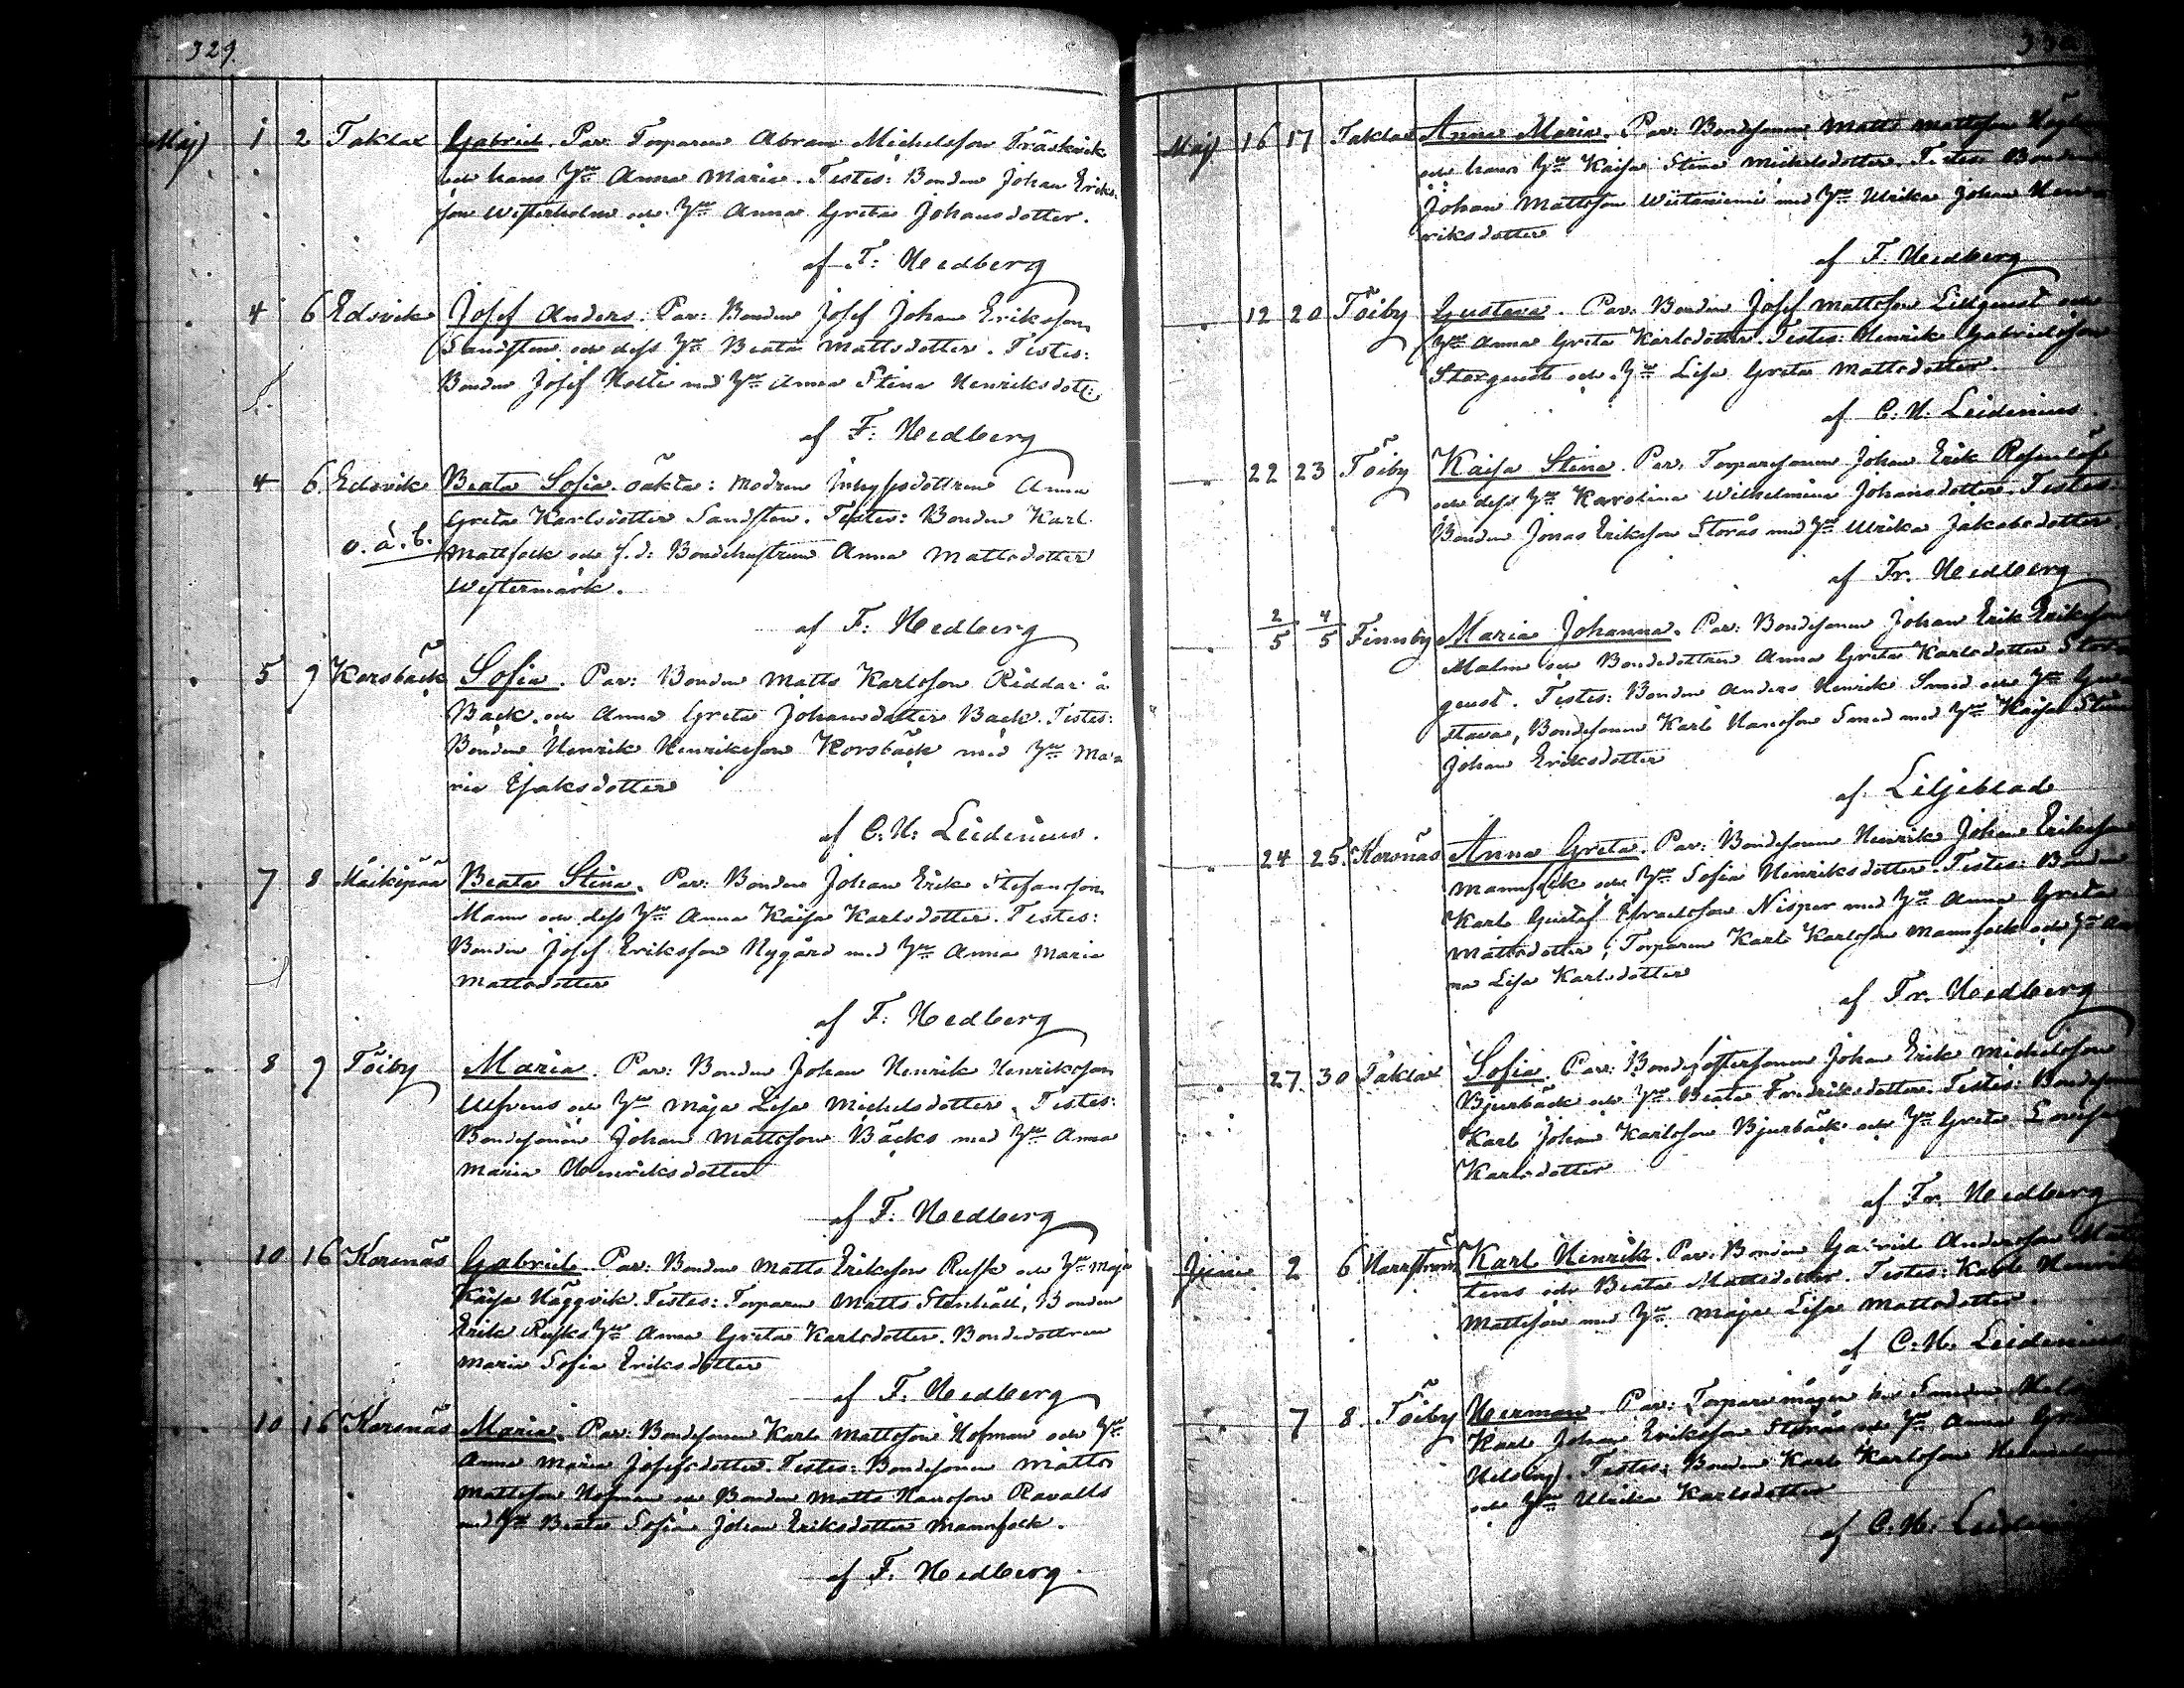 329.
Maj 1 2 Taklax Gabriel. Par: Torparen Abram Michelsson Träskvik
och hans H:u Anna Maria. Testes: Bonden Johan Eriks-
son Westerholm och H:u Anna Greta Johansdotter.
af F: Hedberg
4 6 Edsvik Josef Anders. Par: Bonden Josef Johan Eriksson
Sandsten och dess H:u Beata Mattsdotter. Testes:
Bonden Josef Holti med H:u Anna Stina Henriksdott:
af F: Hedberg
4 6 Edsvik Beata Sofia. oäkta: Modren Inhysesdottren Anna
Greta Karlsdotter Sandsten. Testes: Bonden Karl
o. ä. b. Mattfolk och f.d: Bondehustrun Anna Mattsdotter
Westermark.
af F: Hedberg
5 9 Korsbäck Sofia. Par: Bonden Matts Karlsson Riddar å
Back och Anna Greta Johansdotter Back. Testes:
Bonden Henrik Henriksson Korsbäck med H:u Ma-
ria Esaksdotter
af C: H: Leidenius.
7 8 Måikipää Beata Stina. Par: Bonden Johan Erik Stefansson
Mann och dess H:u Anna Kaisa Karlsdotter. Testes:
Bonden Josef Eriksson Nygård med H:u Anna Maria
Mattsdotter
af F: Hedberg
8 9 Töiby Maria. Par: Bonden Johan Henrik Henriksson
Ulfvens och H:u Maja Lisa Michelsdotter. Testes:
Bondesonen Johan Mattsson Bäcks med H:u Anna
Maria Henriksdotter
af F: Hedberg
10 16 Korsnäs Gabriel. Par: Bonden Matts Eriksson Rusk och H:u Maja
Kaisa Häggvik. Testes: Torparen Matts Stenhäll, Bonden
Erik Rusks H:u Anna Greta Karlsdotter. Bondedottren
Maria Sofia Eriksdotter
af F. Hedberg
10 16 Korsnäs Maria. Par: Bondesonen Karl Mattsson Hofman och H:u
Anna Maria Josefsdotter. Testes: Bondesonen Matts
Mattsson Hofman och Bonden Matts Hansson Ravalls
med H:u Beata Sofia Johan Eriksdotter Mannfolk.
af F. Hedberg.
Maj 16 17 Taklax Anna Maria. Par: Bondesonen Matts Mattsson
och hans H:u Kaisa Stina Michelsdotter. Testes: Bonden
Johan Mattsson Wiitaniemi med H:u Ulrika Johan Hen-
riksdotter
af F. Hedberg
12 20 Töiby Gustava. Par: Bonden Josef Mattsson Lidquist och
H:u Anna Greta Karlsdotter. Testes: Henrik Gabrielsson
Storquist och H:u Lisa Greta Mattsdotter.
af C. H. Leidenius.
22 23 Töiby Kaisa Stina. Par. Torparesonen Johan Erik Rosenlöf
och dess H:u Karolina Wilhelmina Johansdotter. Testes:
Bonden Jonas Eriksson Storås med H:u Ulrika Jakobsdotter.
af Fr. Hedberg
2/5 4/5 Finnby Maria Johanna. Par: Bondesonen Johan Erik Eriksson
Malm och Bondedottren Anna Greta Karlsdotter Stor-
quist. Testes: Bonden Anders Henrik Smed och H:u Gu-
stava, Bondesonen Karl Hansson Smed med H:u Kaisa Stina
Johan Eriksdotter
af Liljeblad
24 25 Korsnäs Anna Greta. Par: Bondesonen Henrik Johan Eriksson
Mannfolk och H:u Sofia Henriksdotter. Testes: Bonden
Karl Gustaf Israelsson Nisper med H:u Anna Greta
Mattsdotter, Torparen Karl Karlsson Mannfolk och H:u An
na Lisa Karlsdotter
af Fr. Hedberg
27. 30 Taklax Sofia. Par: Bondefostersonen Johan Erik Michelsson
Bjurbäck och H:u Beata Fredriksdotter. Testes: Bondesonen
Karl Johan Karlsson Bjurbäck och H:u Greta Lovisa
Karlsdotter
af Fr. Hedberg
Junii 2 6 Harrström Karl Henrik. Par: Bonden Gabriel Andersson
tens och Beata Mattsdotter. Testes: Karl Henrik
Mattsson med H:u Maja Lisa Mattsdotter.
af C. H. Leidenius
7 8 Töiby Herman. Par: Torparemågen hos Smeden
Karl Johan Eriksson Storås och H:u Anna Greta
Testes: Bonden Karl Karlsson
och H:u Ulrika Karlsdotter
af C. H. Leidenius